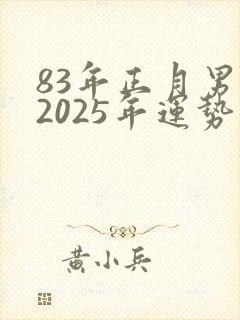 83年正月男
2025年運勢
黃小兵